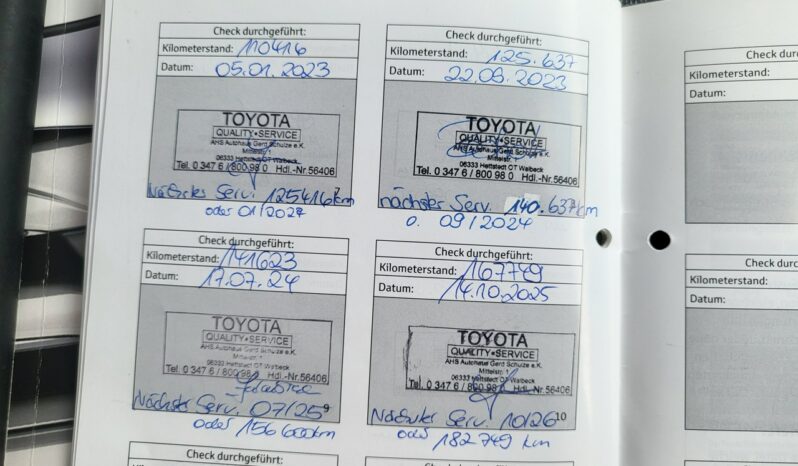 Check durchgeführt:
Kilometerstand: 110416
Datum: 05.01.2023
TOYOTA
QUALITY•SERVICE
AHS Autohaus Gerd Schulze e.K.
Mittelstr. 1
06333 Hettstedt OT Walbeck
Tel. 0 347 6 / 800 98 0 Hdl.-Nr.56406
Nächster Serv. 125416 km
oder 01/2024
7
Check durchgeführt:
Kilometerstand: 125.637
Datum: 22.09.2023
TOYOTA
QUALITY•SERVICE
AHS Autohaus Gerd Schulze e.K.
Mittelstr. 1
06333 Hettstedt OT Walbeck
Tel. 0 347 6 / 800 98 0 Hdl.-Nr.56406
nächster Serv. 140.637 km
o. 09/2024
Check durchgeführt:
Kilometerstand: 141623
Datum: 17.07.24
TOYOTA
QUALITY•SERVICE
AHS Autohaus Gerd Schulze e.K.
Mittelstr. 1
06333 Hettstedt OT Walbeck
Tel. 0 347 6 / 800 98 0 Hdl.-Nr.56406
Nächster Serv. 07/25
9
oder 156 600km
Check durchgeführt:
Kilometerstand: 167749
Datum: 14.10.2025
TOYOTA
QUALITY•SERVICE
AHS Autohaus Gerd Schulze e.K.
Mittelstr. 1
06333 Hettstedt OT Walbeck
Tel. 0 347 6 / 800 98 0 Hdl.-Nr.56406
Nächster Serv. 10/26
10
oder 182749 km
Check durchgeführt:
Check durchgeführt:
Check
Kilometerstand:
Datum:
Check
Kilometerstand:
Datum: